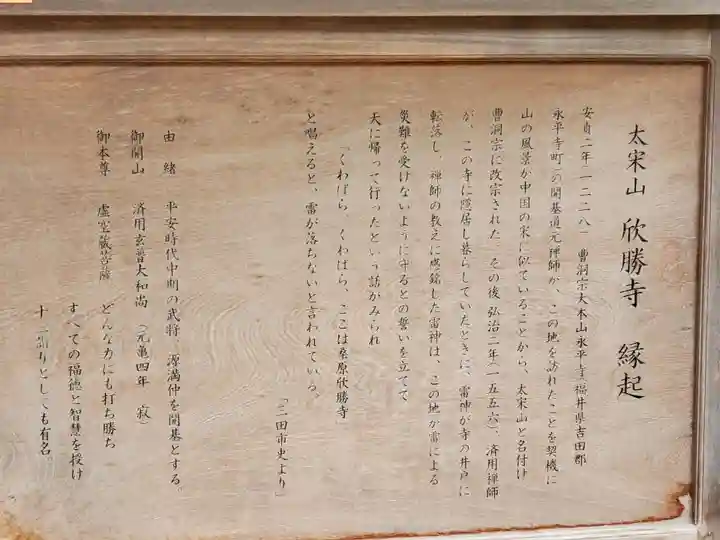 太宋山 欣勝寺 縁起
安貞二年(一二二八)曹洞宗大本山永平寺(福井県吉田郡
永平寺町)の開基道元禅師が、この地を訪れたことを契機に
山の風景が中国の宋に似ていることから、太宋山と名付け
曹洞宗に改宗された。その後 弘治二年(一五五六)、済用禅師
が、この寺に隠居し暮らしていたときに、雷神が寺の井戸に
転落し、禅師の教えに感銘した雷神は、この地が雷による
災難を受けないように守るとの誓いを立てて
天に帰って行ったという話がみられ
「くわばら、くわばら、ここは桑原欣勝寺」
と唱えると、雷が落ちないと言われている。
「三田市史より」
由緒 平安時代中期の武将、源満仲を開基とする。
御開山 済用玄普大和尚 (元亀四年 寂)
御本尊 虚空蔵菩薩 どんな力にも打ち勝ち
すべての福徳と智慧を授け
十三詣りとしても有名。